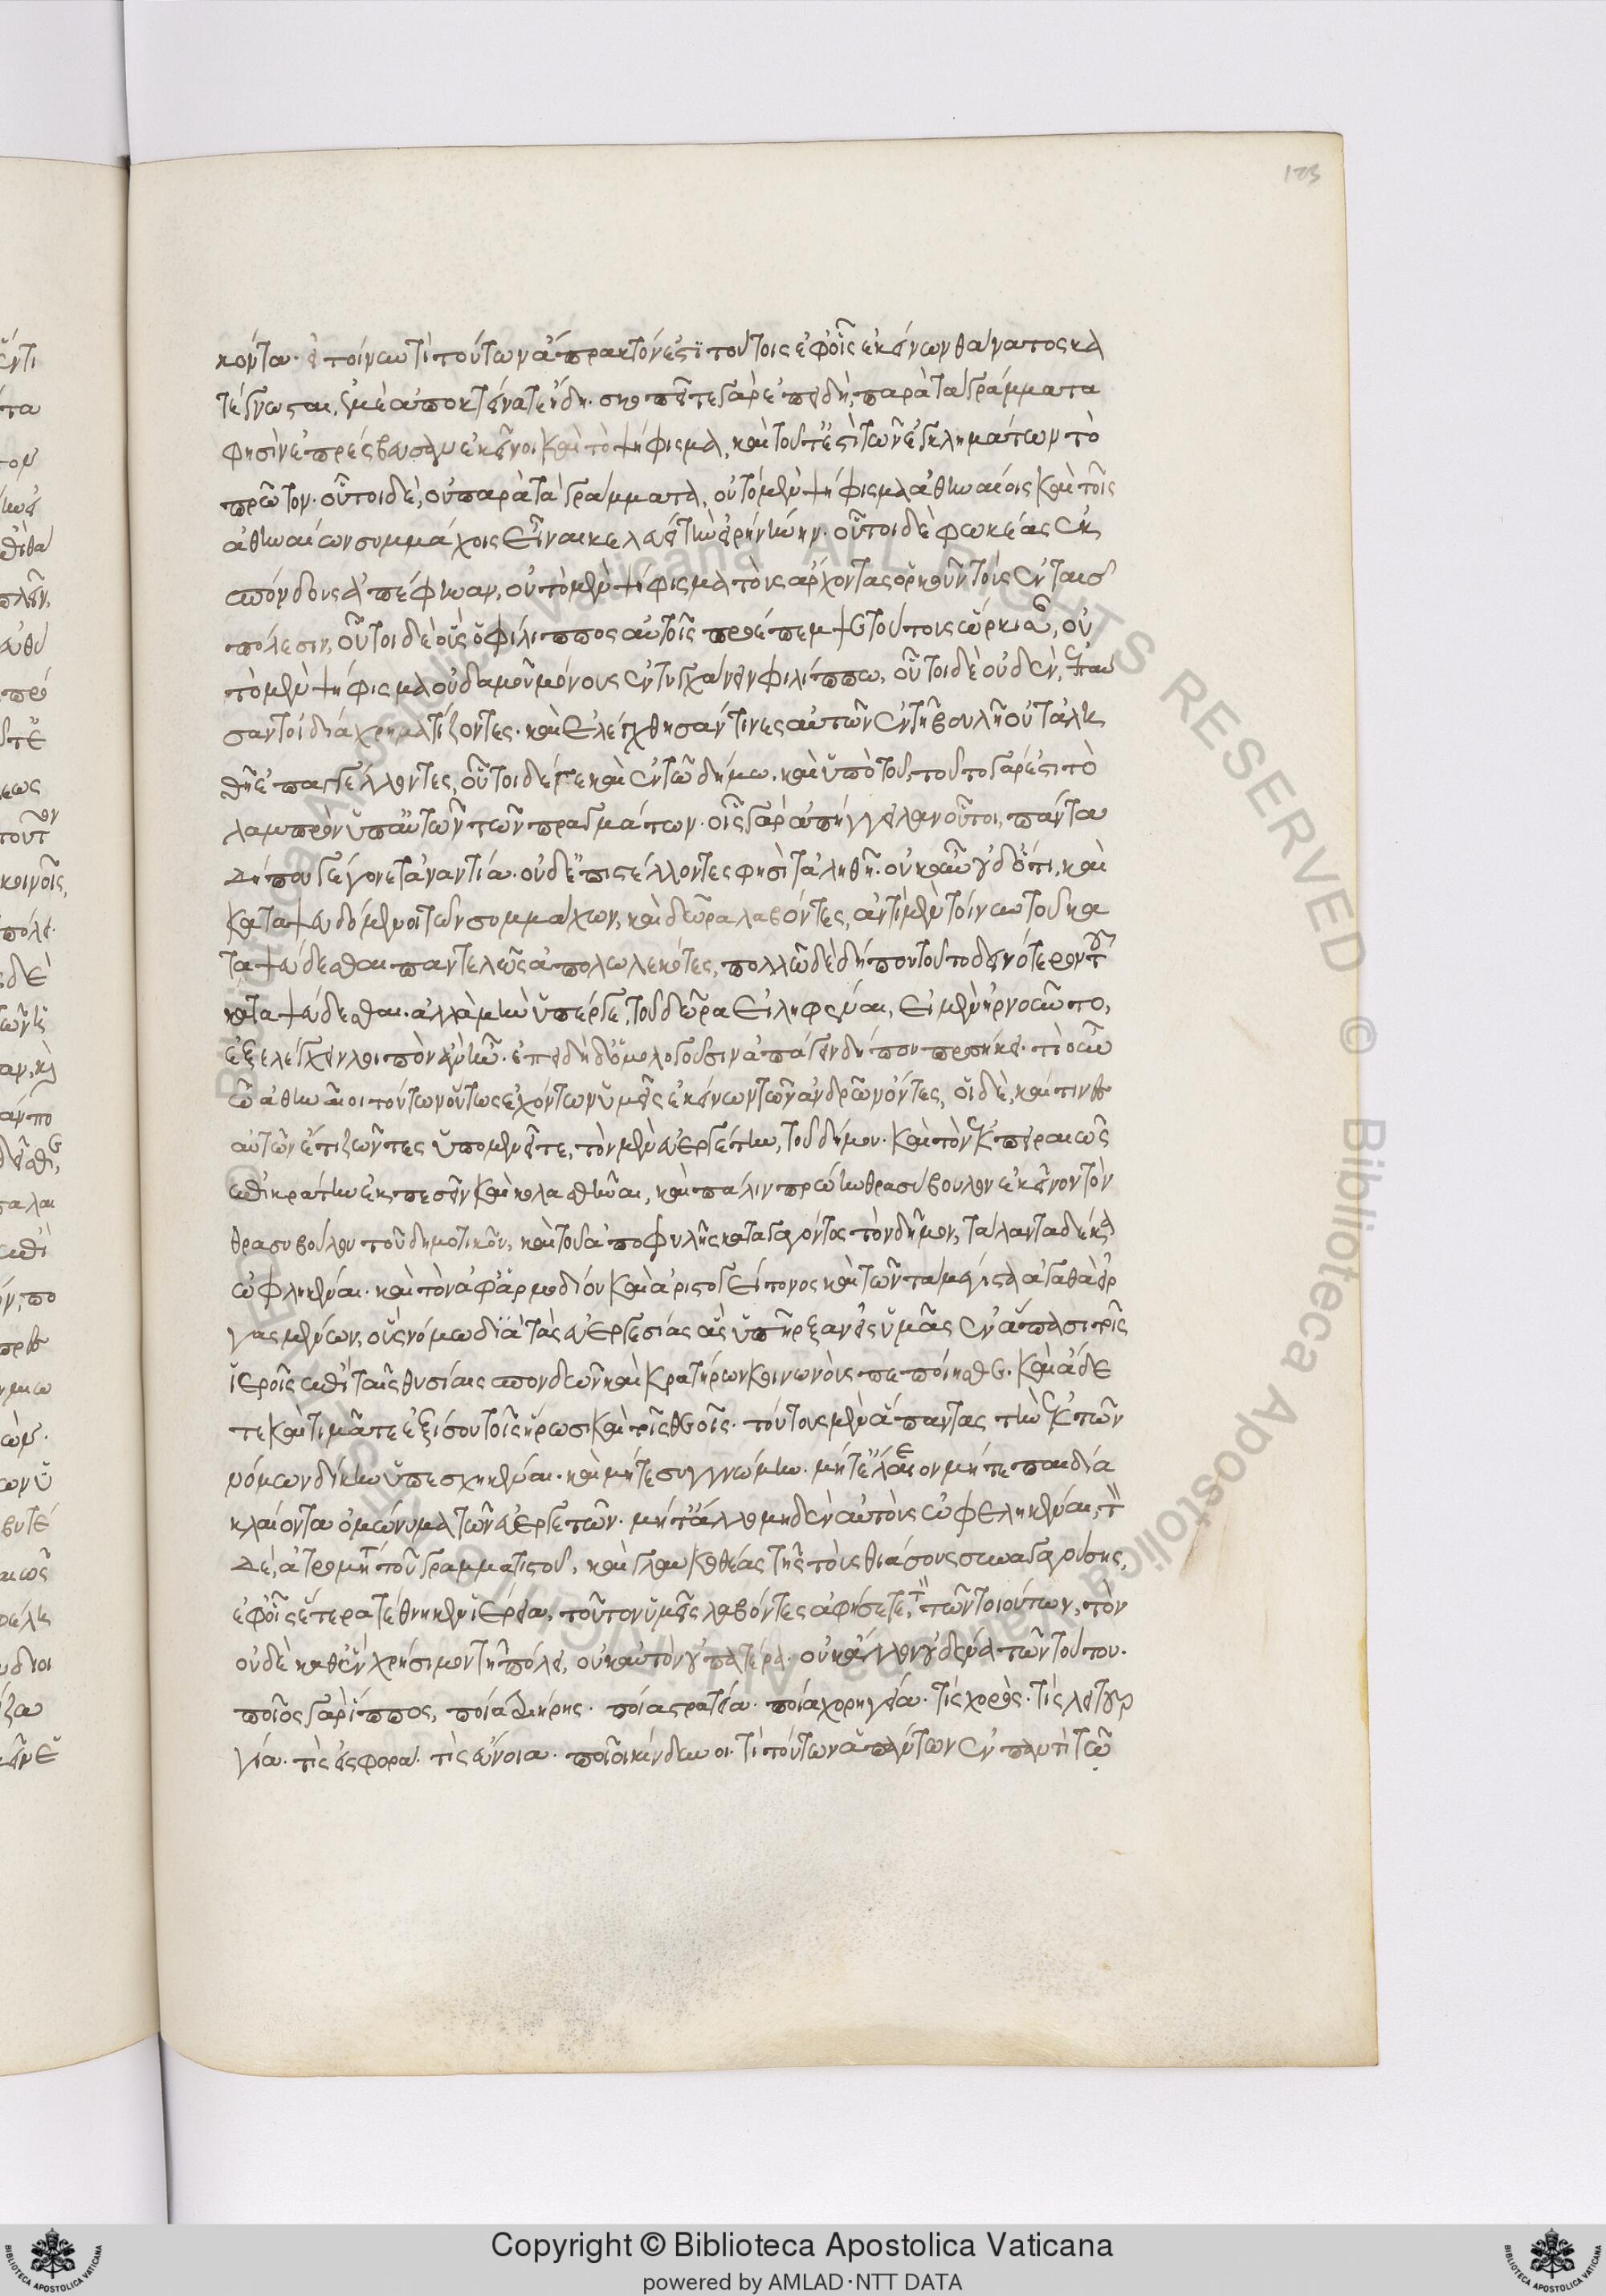 κόντα. εἰ τοίνυν τι τούτων ἄπρακτόν ἐστι τούτοις ἐφ' οἷς ἐκείνων θάνατος κα
τέγνωσται, ἐμὲ ἀποκτείνατε ἤδη. σκοπεῖτε γάρ ἐπειδὴ, παρὰ τὰ γράμματα
φησὶν ἐπρέσβευσαν ἐκεῖνοι καὶ τὸ ψήφισμα, καὶ τοῦτ' ἔστι τῶν ἐγκλημάτων τὸ
πρῶτον. οὗτοι δὲ, οὐ παρὰ τὰ γράμματα, οὐ τὸ μὲν ψήφισμα ἀθηναίοις καὶ τοῖς
ἀθηναίων συμμάχοις εἶναι κελεύει τὴν εἰρήνην. οὗτοι δὲ φωκέας ἐκ
σπόνδους ἀπέφηναν, οὐ τὸ μὲν ψήφισμα τοὺς ἄρχοντας ὁρκοῦν τοὺς ἐν ταῖς
πόλεσιν, οὗτοι δὲ οὓς ὁ φίλιππος αὐτοῖς προσέπεμψε τούτους ὥρκισαν, οὐ
τὸ μὲν ψήφισμα οὐδαμοῦ μόνους ἐντυγχάνειν φιλίππω, οὗτοι δὲ οὐδὲν, ἐπαύ
σαντο ἰδία χρηματίζοντες. καὶ ἐλέγχθησάν τινες αὐτῶν ἐν τῇ βουλῇ οὐ τἀλη
θῆ ἐπαγγέλλοντες, οὗτοι δέ γε καὶ ἐν τῶ δήμω. καὶ ὑπὸ τοῦ, τουτο γάρ ἐστι τὸ
λαμπρὸν ὑπ' αὐτῶν τῶν πραγμάτων. οἷς γὰρ ἀπήγγειλαν οὗτοι, πάντα
δήπου γέγονε τἀναντία. οὐδ' ἐπιστέλλοντες φησὶ τἀληθῆ. οὐκοῦν οὐδ' οὗτοι, καὶ
καταψευδόμενοι τῶν συμμάχων, καὶ δῶρα λαβόντες, ἀντὶ μὲν τοίνυν τοῦ κα
ταψεύδεσθαι παντελῶς ἀπολωλεκότες, πολλῶ δὲ δήπου τοῦτο δεινότερον τοῦ
καταψεύδεσθαι. ἀλλὰ μὴν ὑπέρ γε, τοῦ δῶρα εἰληφέναι, εἰ μὲν ἠρνοῦντο,
ἐξελέγχειν λοιπὸν ἂν ἦν. ἐπειδὴ δ' ὁμολογοῦσιν ἀπάγειν δήπου προσήκει. τί οὖν
ὦ ἀθηναῖοι τούτων οὕτως ἐχόντων ὑμεῖς ἐκείνων τῶν ἀνδρῶν ὄντες, οἱ δὲ, καί τινες
αὐτῶν ἔτι ζῶντες ὑπομενεῖτε, τὸν μὲν εὐεργέτην, τοῦ δήμου. καὶ τὸν ἐκ πειραιῶς
ἐπικράτην ἐκπεσεῖν καὶ κολασθῆναι, καὶ πάλιν πρώην θρασύβουλον ἐκεῖνον τὸν
θρασυβούλου τοῦ δημοτικοῦ, καὶ τοῦ ἀπὸ φυλῆς καταγαγόντος τὸν δῆμον, τάλαντα δέκα
ὠφληκέναι. καὶ τὸν ἀφ' ἁρμοδίου καὶ ἀριστογείτονος καὶ τῶν τα μέγιστα ἀγαθὰ εἰρ
γασμένων, οὓς νόμω διὰ τὰς εὐεργεσίας ἃς ὑπῆρξαν εἰς ὑμᾶς ἐν ἅπασι τοῖς
ἱεροῖς ἐπὶ ταῖς θυσίαις σπονδῶν καὶ κρατήρων κοινωνοὺς πεποίησθε. καὶ ἄδε
τε καὶ τιμᾶτε ἐξίσου τοῖς ἥρωσι καὶ τοῖς θεοῖς. τούτους μὲν ἅπαντας τὴν ἐκ τῶν
νόμων δίκην ὑπεσχηκέναι. καὶ μήτε συγγνώμην. μήτε ἔλεον μήτε παιδία
κλαίοντα ὁμώνυμα τῶν εὐεργετῶν. μήτ' ἄλλο μηδὲν αὐτοὺς ὠφεληκέναι, τὸν
δὲ, ἀτρομήτου τοῦ γραμματιστοῦ, καὶ γλαυκοθέας τῆς τοὺς θιάσους συναγαγούσης,
ἐφ' οἷς ἑτέρα τέθνηκεν ἱέρεια, τοῦτον ὑμεῖς λαβόντες ἀφήσετε, τὸν τῶν τοιούτων, τὸν
οὐδὲ καθ' ἓν χρήσιμον τῇ πόλει, οὐκ αὐτὸν οὐ πατέρα. οὐκ ἄλλον οὐδένα τῶν τούτου.
ποῖος γὰρ ἵππος, ποία τριήρης. ποία στρατεία. ποία χορηγεία. τίς χορὸς. τίς λειτουρ
γία. τίς εἰσφορά. τίς εὔνοια. ποῖοι κίνδυνοι. τί τούτων ἁπάντων ἐν παντὶ τῶ